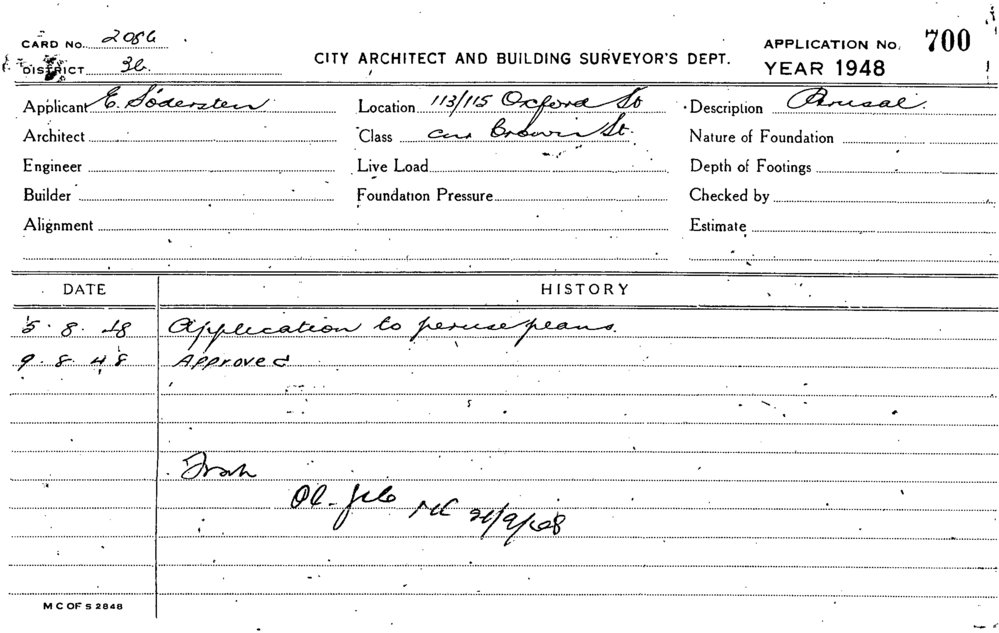 CARD No. 2086
DISTRICT 3b
CITY ARCHITECT AND BUILDING SURVEYOR'S DEPT.
APPLICATION No. 700
YEAR 1948
Applicant E. Södersten Location 113/115 Oxford St Description Perusal.
Architect Class cnr Crown St. Nature of Foundation
Engineer Live Load Depth of Footings
Builder Foundation Pressure Checked by
Alignment Estimate
DATE HISTORY
5.8.48 Application to peruse plans.
9.8.48 Approved
M C OF S 2848